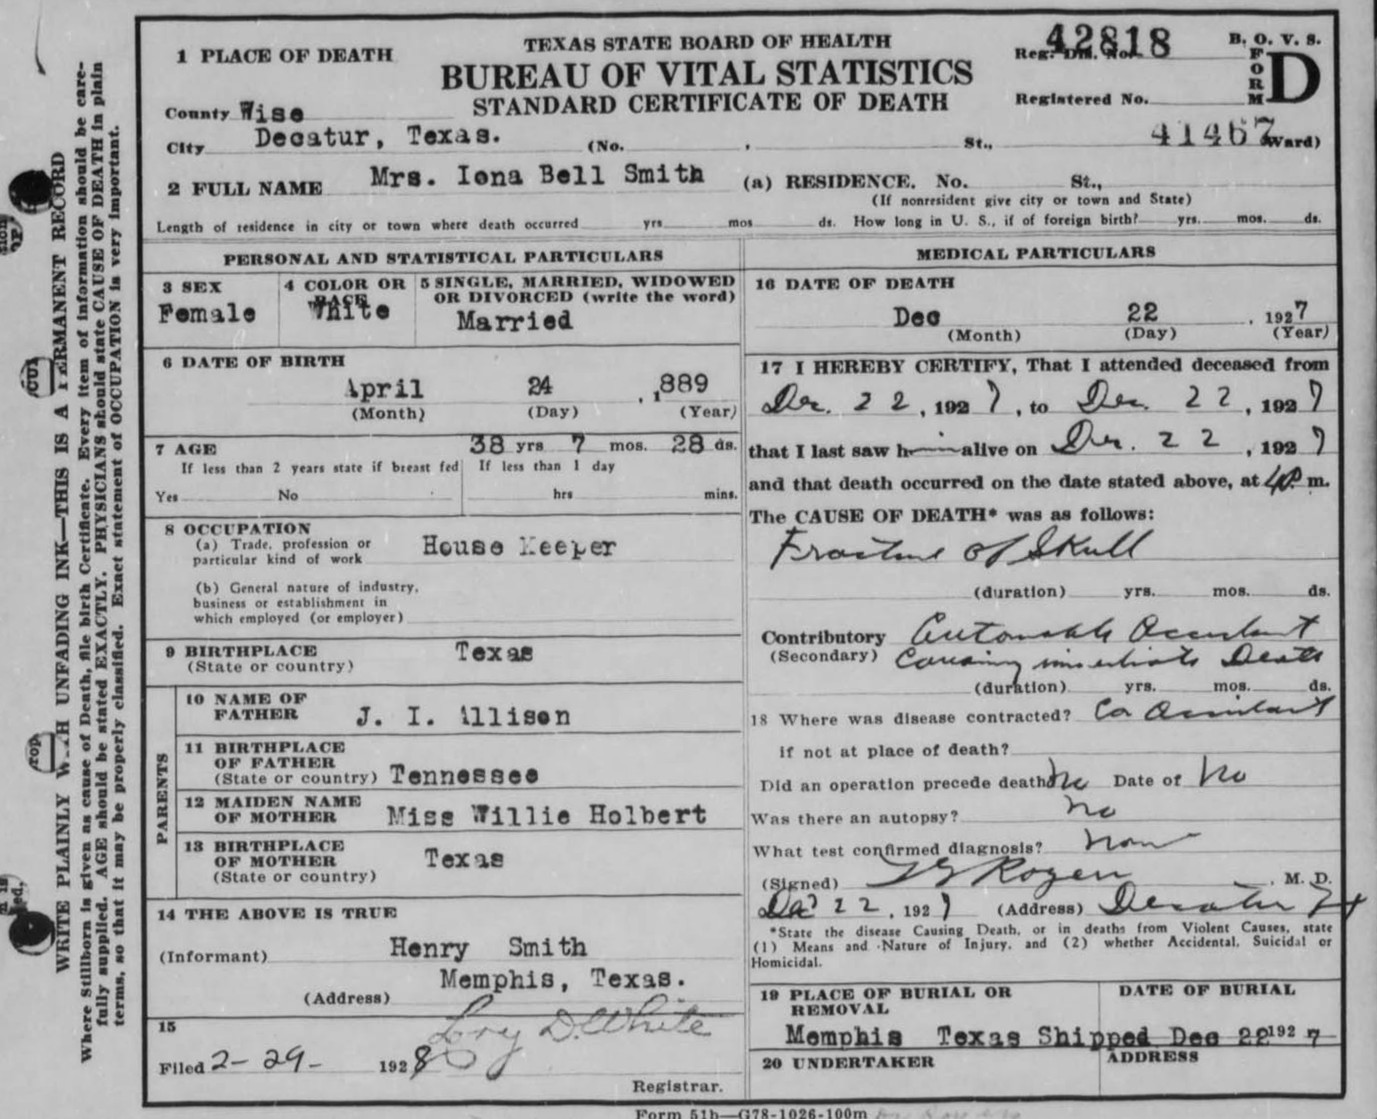 WRITE PLAINLY WITH UNFADING INK—THIS IS A PERMANENT RECORD
Where Stillborn is given as cause of Death, file birth Certificate. Every item of information should be care-
fully supplied. AGE should be stated EXACTLY. PHYSICIANS should state CAUSE OF DEATH in plain
terms, so that it may be properly classified. Exact statement of OCCUPATION is very important.
1 PLACE OF DEATH
TEXAS STATE BOARD OF HEALTH
BUREAU OF VITAL STATISTICS
STANDARD CERTIFICATE OF DEATH
42818
Reg. Dis. No.
Registered No.
B. O. V. S.
FORM D
County Wise
City Decatur, Texas. (No. , St., 41467 Ward)
2 FULL NAME Mrs. Iona Bell Smith (a) RESIDENCE. No. St.,
(If nonresident give city or town and State)
Length of residence in city or town where death occurred yrs mos ds. How long in U. S., if of foreign birth? yrs. mos. ds.
PERSONAL AND STATISTICAL PARTICULARS
3 SEX
Female
4 COLOR OR RACE
White
5 SINGLE, MARRIED, WIDOWED
OR DIVORCED (write the word)
Married
6 DATE OF BIRTH
April 24 , 1889
(Month) (Day) (Year)
7 AGE 38 yrs 7 mos. 28 ds.
If less than 2 years state if breast fed If less than 1 day
Yes No hrs mins.
8 OCCUPATION
(a) Trade, profession or
particular kind of work House Keeper
(b) General nature of industry,
business or establishment in
which employed (or employer)
9 BIRTHPLACE
(State or country) Texas
PARENTS
10 NAME OF
FATHER J. I. Allison
11 BIRTHPLACE
OF FATHER
(State or country) Tennessee
12 MAIDEN NAME
OF MOTHER Miss Willie Holbert
13 BIRTHPLACE
OF MOTHER
(State or country) Texas
14 THE ABOVE IS TRUE
(Informant) Henry Smith
(Address) Memphis, Texas.
15
Filed 2-29- 1928 D. White
Registrar.
MEDICAL PARTICULARS
16 DATE OF DEATH
Dec 22 , 1927
(Month) (Day) (Year)
17 I HEREBY CERTIFY, That I attended deceased from
Dec. 22, 1927, to Dec. 22, 1927
that I last saw h alive on Dec. 22, 1927
and that death occurred on the date stated above, at 4 P. m.
The CAUSE OF DEATH* was as follows:
Fracture of Skull
(duration) yrs. mos. ds.
Contributory Automobile Accident
(Secondary) Causing immediate Death
(duration) yrs. mos. ds.
18 Where was disease contracted?
if not at place of death?
Did an operation precede death No Date of No
Was there an autopsy? No
What test confirmed diagnosis?
(Signed) Rogers M. D.
Dec 22, 1927 (Address) Decatur Tx
*State the disease Causing Death, or in deaths from Violent Causes, state
(1) Means and Nature of Injury, and (2) whether Accidental, Suicidal or
Homicidal.
19 PLACE OF BURIAL OR
REMOVAL
DATE OF BURIAL
Memphis Texas Shipped Dec 22 1927
20 UNDERTAKER
ADDRESS
Form 51b—G78-1026-100m